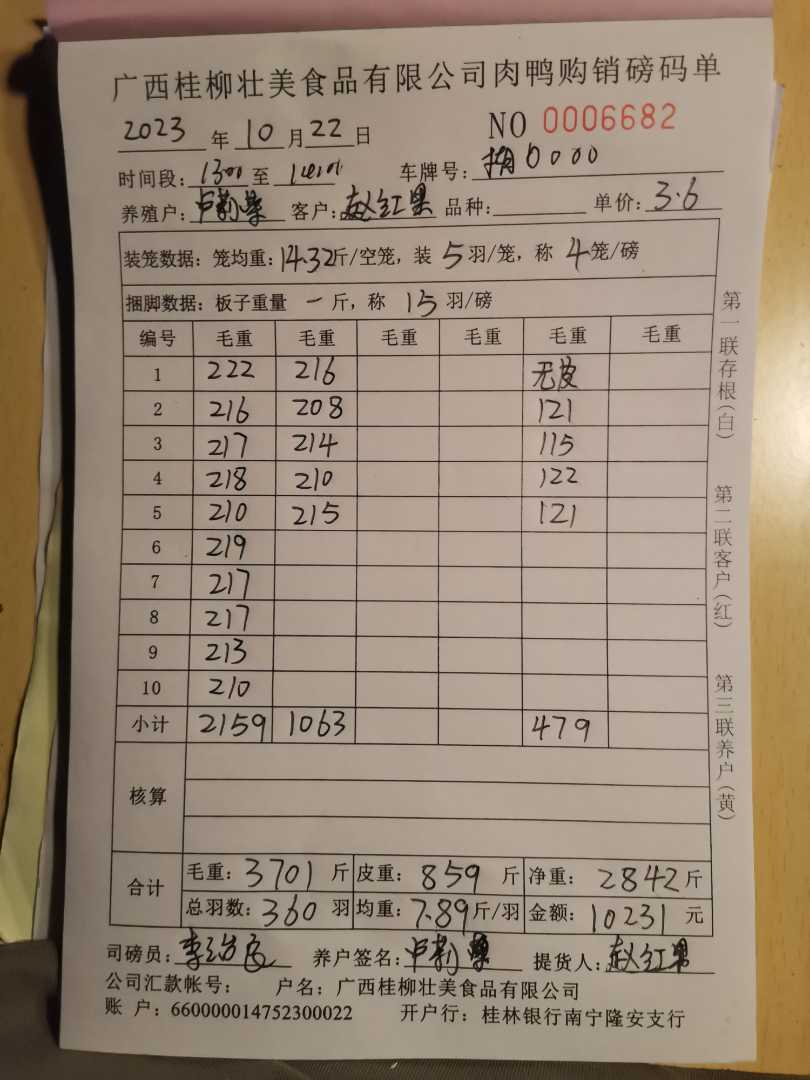 广西桂柳壮美食品有限公司肉鸭购销磅码单
2023 年 10 月 22 日 NO 0006682
时间段: 1300 至 车牌号: 0000
养殖户: 客户: 赵红果 品种: 单价: 3.6
装笼数据: 笼均重: 14.32 斤/空笼, 装 5 羽/笼, 称 4 笼/磅
捆脚数据: 板子重量 一 斤, 称 15 羽/磅
编号 毛重 毛重 毛重 毛重 毛重 毛重
1 222 216 无皮
2 216 208 121
3 217 214 115
4 218 210 122
5 210 215 121
6 219
7 217
8 217
9 213
10 210
小计 2159 1063 479
核算
合计 毛重: 3701 斤 皮重: 859 斤 净重: 2842 斤
总羽数: 360 羽 均重: 7.89 斤/羽 金额: 10231 元
司磅员: 养户签名: 提货人: 赵红果
公司汇款帐号: 户名: 广西桂柳壮美食品有限公司
账 户: 660000014752300022 开户行: 桂林银行南宁隆安支行
第一联存根(白) 第二联客户(红) 第三联养户(黄)